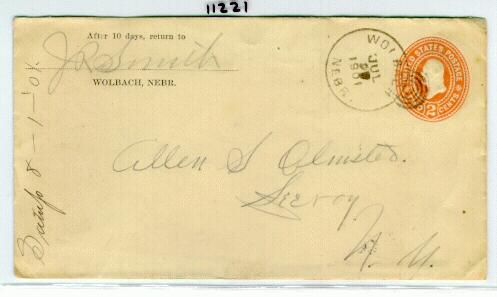 11221
After 10 days, return to
J R Smith
WOLBACH, NEBR.
WOLBACH
JUL
1901
NEBR.
UNITED STATES POSTAGE
2 CENTS
Allen S Olmsted
Leroy
N. Y.
8-1-01